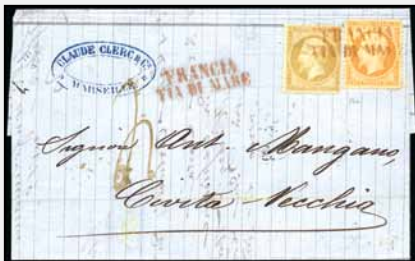 CLAUDE CLERC & Cie
MARSEILLE
FRANCIA
VIA DI MARE
FRANCIA
VIA DI MARE
Signor Ant. Mangano,
Civita-Vecchia